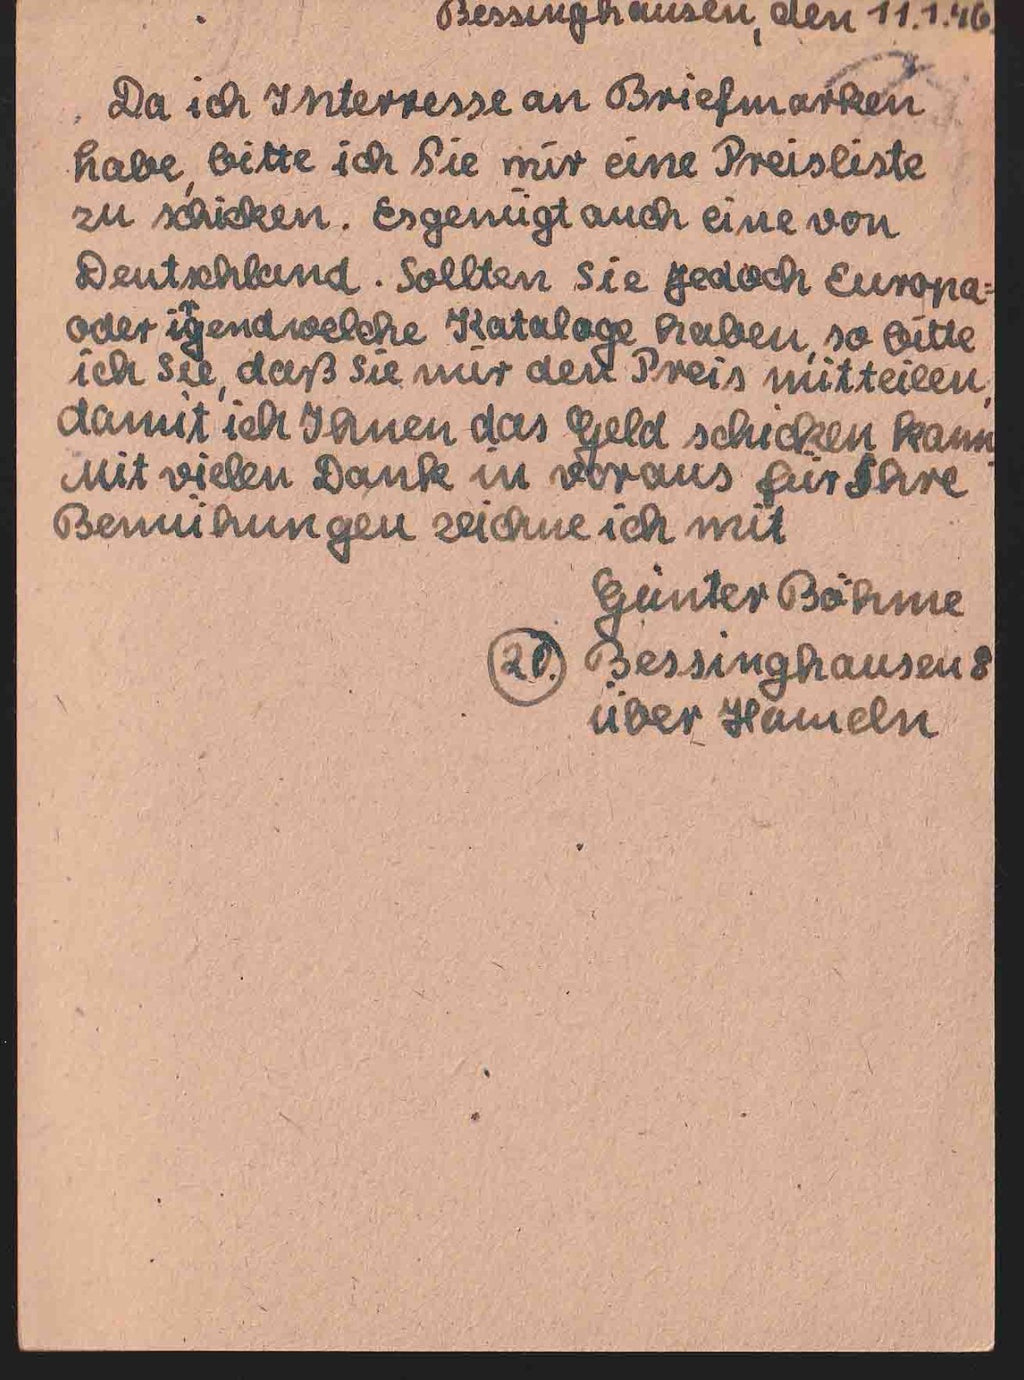 Bessinghausen, den 11.1.46.
Da ich Interresse an Briefmarken
habe, bitte ich Sie mir eine Preisliste
zu schicken. Es genügt auch eine von
Deutschland. Sollten Sie jedoch Europa=
oder irgendwelche Kataloge haben, so bitte
ich Sie, daß Sie mir den Preis mitteilen,
damit ich Ihnen das Geld schicken kann.
Mit vielen Dank in voraus für Ihre
Bemühungen zeichne ich mit
Günter Böhme
(20.) Bessinghausen 8
über Hameln